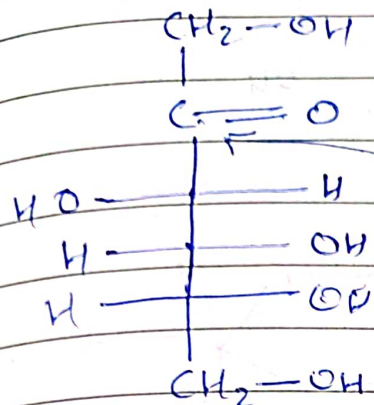 CH₂-OH
C=O
HO H
H OH
H OH
CH₂-OH